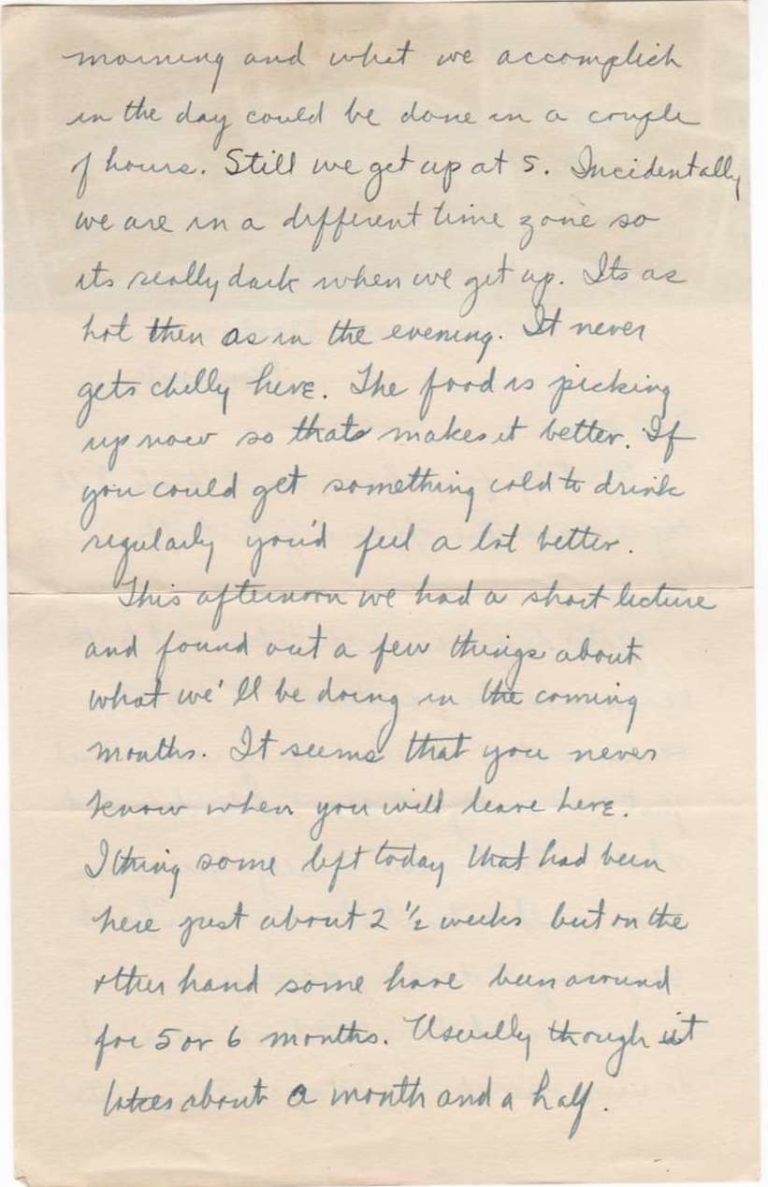 morning and what we accomplish
in the day could be done in a couple
of hours. Still we get up at 5. Incidentally
we are in a different time zone so
its really dark when we get up. Its as
hot then as in the evening. It never
gets chilly here. The food is picking
up now so thats makes it better. If
you could get something cold to drink
regularly you'd feel a lot better.
This afternoon we had a short lecture
and found out a few things about
what we'll be doing in the coming
months. It seems that you never
know when you will leave here.
I thing some left today that had been
here just about 2 1/2 weeks but on the
other hand some have been around
for 5 or 6 months. Usually though it
takes about a month and a half.